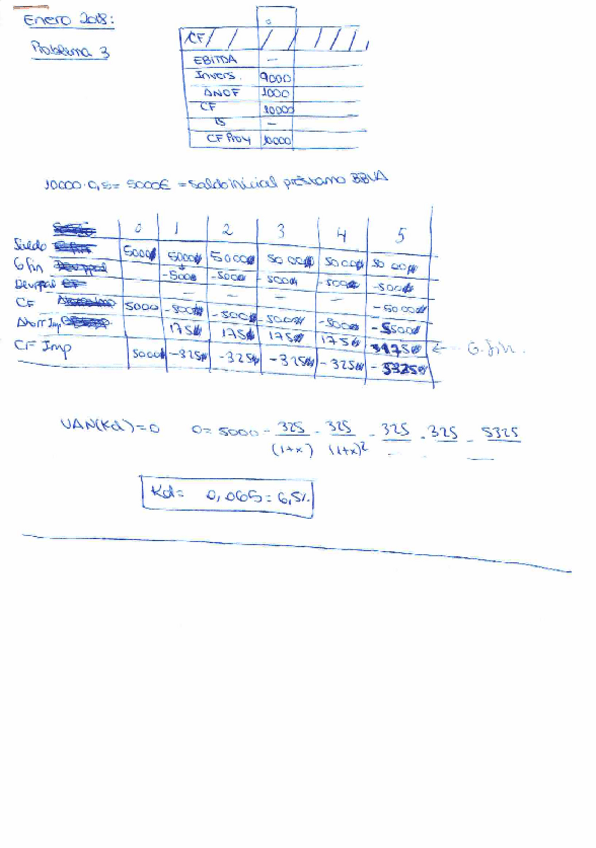 Enero 2018:
Problema 3
0
CF
EBITDA —
Invers. 9000
ΔNOF 1000
CF 10000
IS —
CF Proy 10000
10000·0,5 = 5000€ = saldo inicial préstamo BBVA
0 1 2 3 4 5
Saldo 5000 5000 5000 5000 5000 5000
G fin -500 -500 -500 -500 -500
Dev ppal — — — — -5000
CF 5000 -500 -500 -500 -500 -5500
Ahorr Imp 175 175 175 175 175 ← G. fin.
CF Imp 5000 -325 -325 -325 -325 -5325
VAN(Kd)=0 0 = 5000 - 325/(1+x) - 325/(1+x)² - 325 - 325 - 5325
Kd = 0,065 = 6,5%